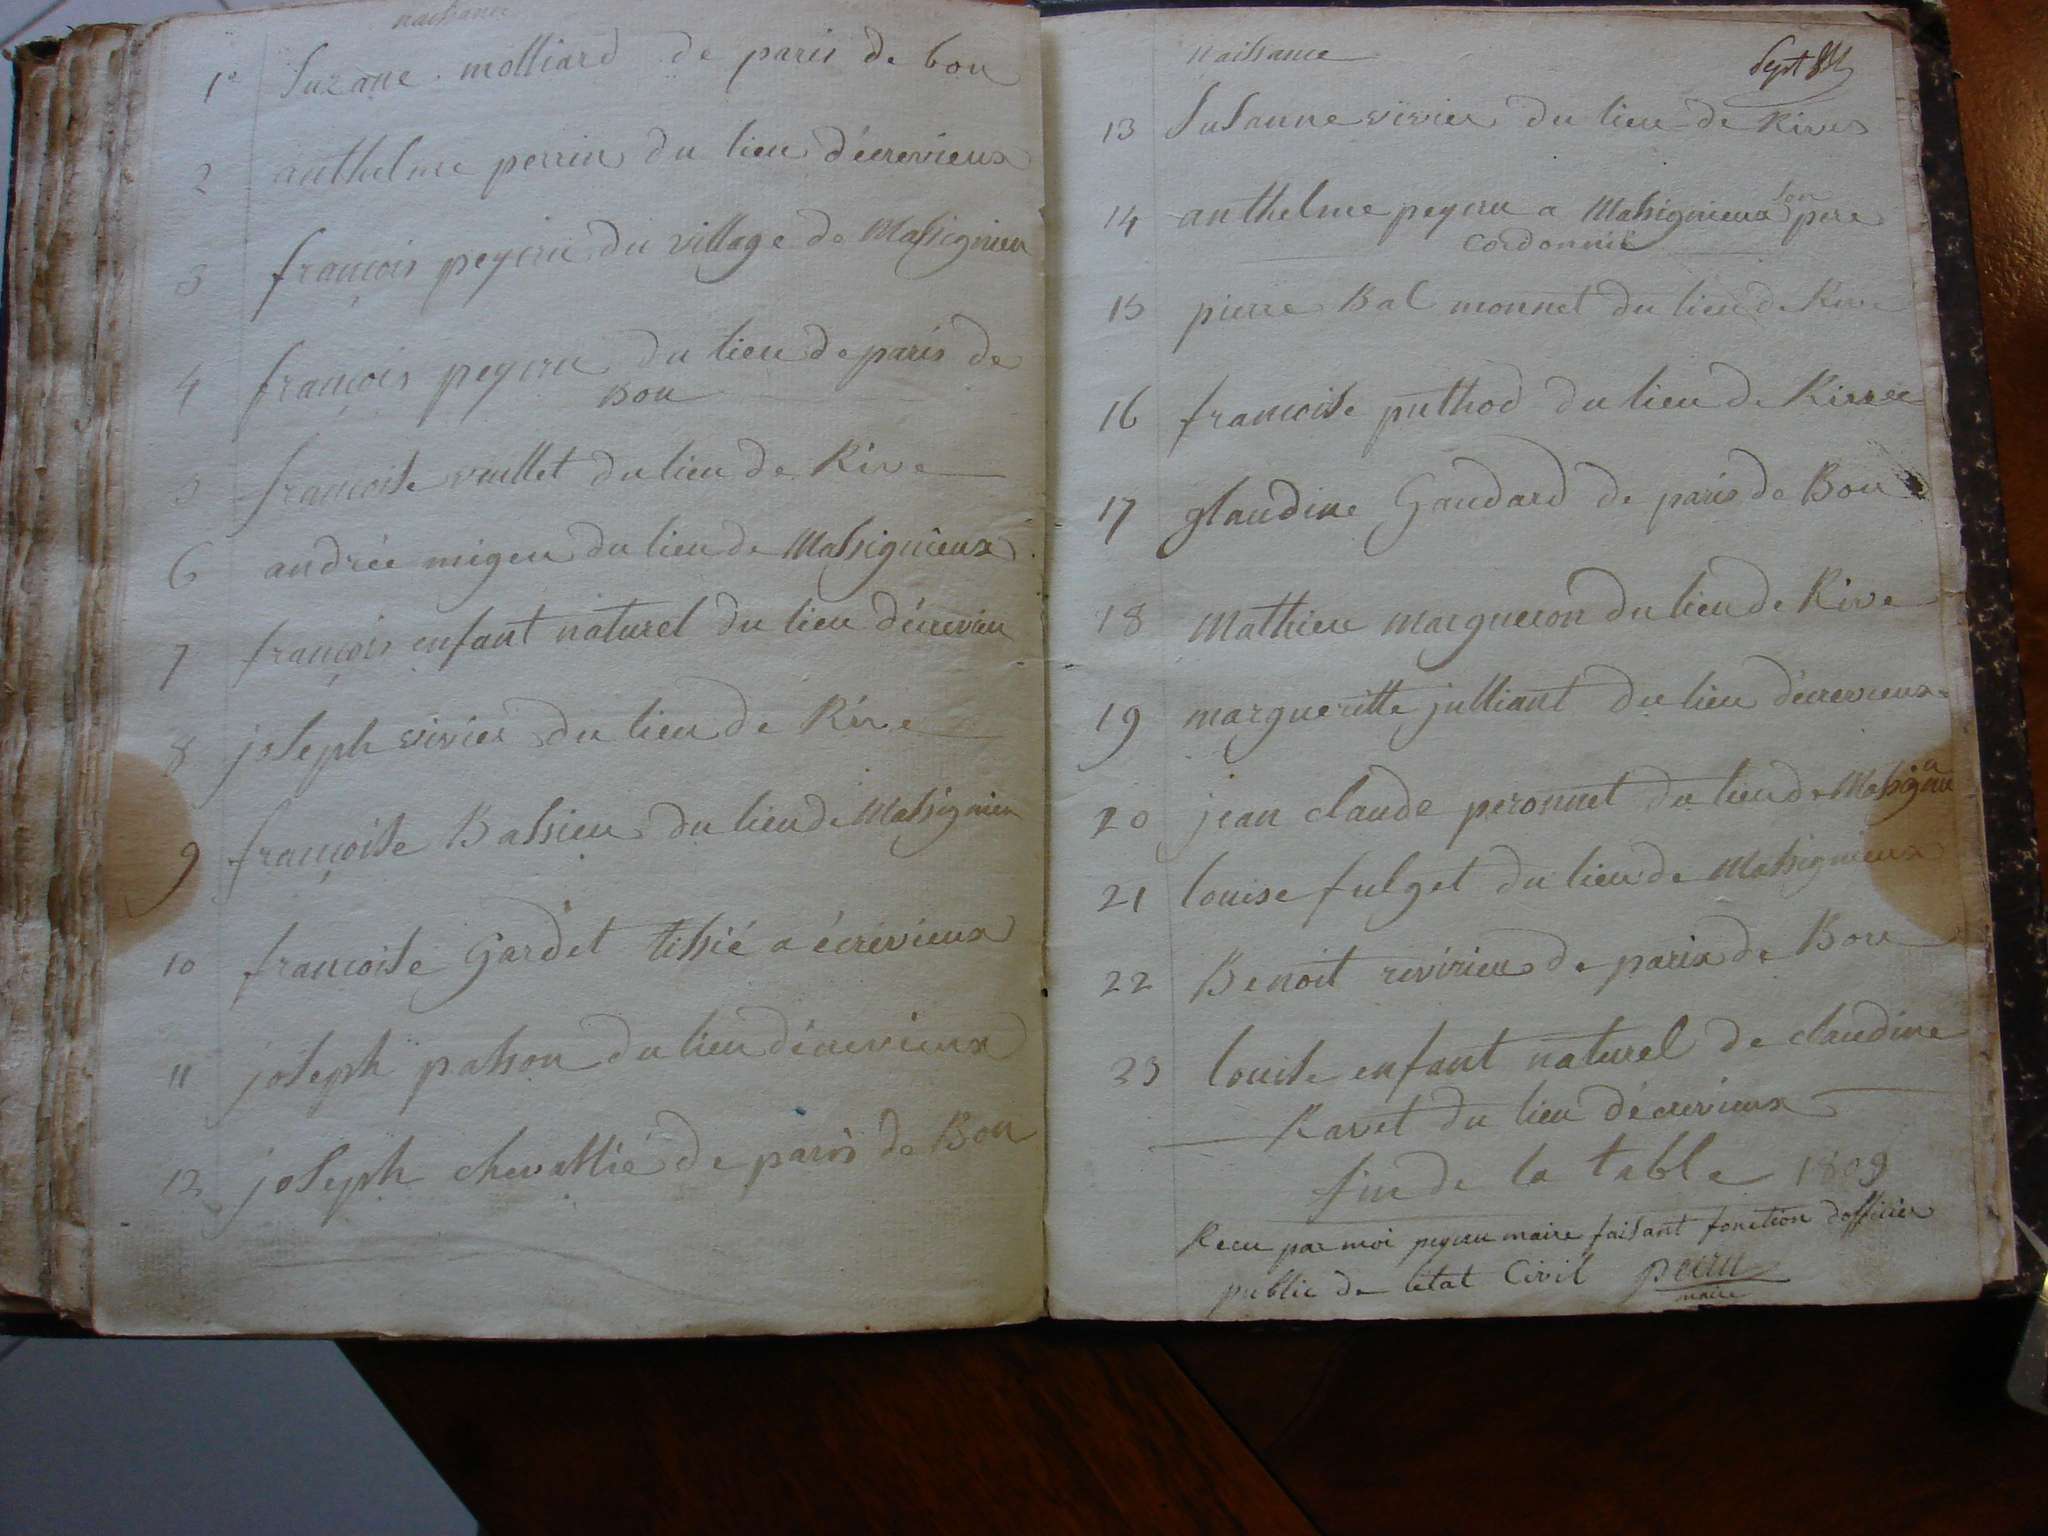 naissance
1e Suzane molliard de paris de bou
2 anthelme perrin du lieu d'écrevieux
3 françois peycru du village de Massignieu
4 françois peycru du lieu de paris de
Bou
5 francoise vuillet du lieu de Rive
6 andrée migeu du lieu de Massignieux
7 françois enfant naturel du lieu d'écrevieu
8 joseph vivier du lieu de Rive
9 françoise Bassieu du lieu de Massignieu
10 francoise Gardet tissié a écrevieux
11 joseph passon du lieu d'écrevieux
12 joseph chevallié de paris de Bou
naissance
Sept
13 Susanne vivier du lieu de Rives
14 anthelme peycru a Massignieux son pere
cordonnié
15 pierre Bal monnet du lieu de Rive
16 francoise puthod du lieu de Rive
17 glaudine Gaudard de paris de Bou
18 Mathieu margueron du lieu de Rive
19 margueritte julliant du lieu d'écrevieux
20 jean claude peronnet du lieu de Massignieu
21 louise fulget du lieu de Massignieux
22 Benoit revirieu de paris de Bou
23 louise enfant naturel de claudine
Ravet du lieu d'écrevieux
fin de la table 1809
Recu par moi peycru maire faisant fonction dofficier
public de létat Civil pecru
maire